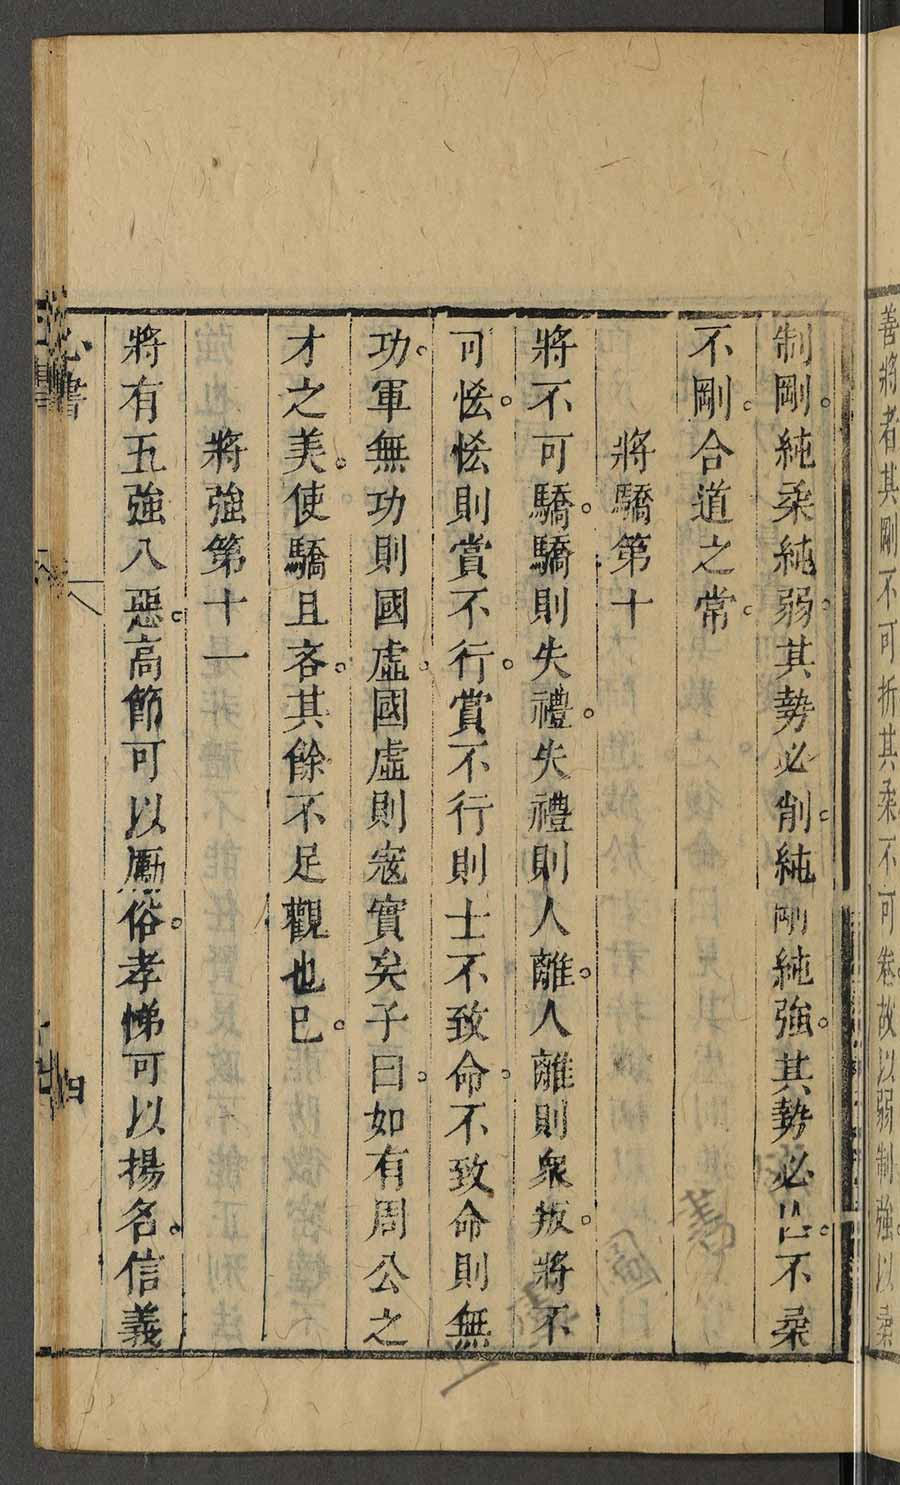 善將者其剛不可折其柔不可卷故以弱制強以柔
制剛。純柔純弱。其勢必削。純剛純強。其勢必亡。不柔
不剛。合道之常。
將驕第十
將不可驕。驕則失禮。失禮則人離。人離則衆叛。將不
可恡。恡則賞不行。賞不行則士不致命。不致命則無
功。軍無功則國虛。國虛則寇實矣子曰。如有周公之
才之美。使驕且吝。其餘不足觀也已。
將強第十一
將有五強八惡。高節可以厲俗。孝悌可以揚名。信義
心書
八
四